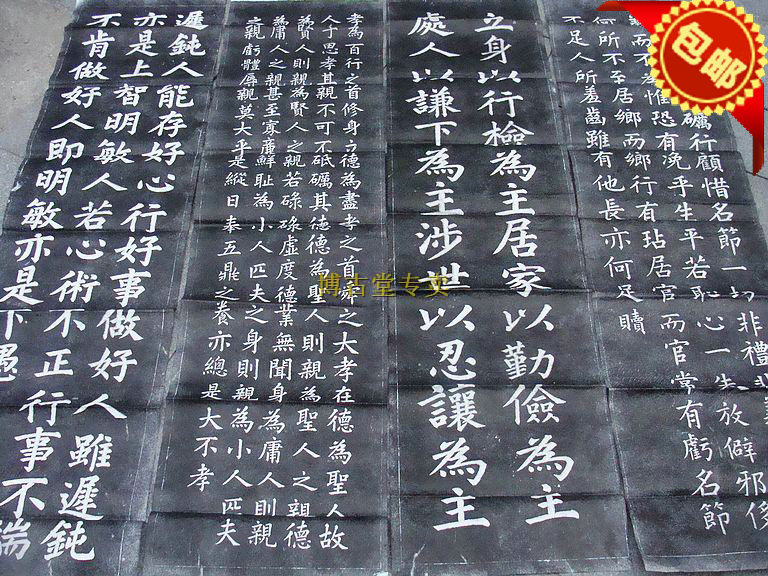 礪行顧惜名節一切非禮非義
而不為惟恐有浼乎生平若恥心一生放僻邪侈
何所不至居鄉而鄉行有玷居官而官常有虧名節
不足人所羞齒雖有他長亦何足贖
立身以行檢為主居家以勤儉為主
處人以謙下為主涉世以忍讓為主
孝為百行之首修身立德為盡孝之首舜之大孝在德為聖人故
人子思孝其親不可不砥礪其德德為聖人則親為聖人之親德
為賢人則親為賢人之親若碌碌虛度德業無聞身為庸人則親
為庸人之親甚至寡廉鮮恥為小人匹夫之身則親為小人匹夫
之親虧體辱親莫大乎是縱日奉五鼎之養亦總是大不孝
遲鈍人能存好心行好事做好人雖遲鈍
亦是上智明敏人若心術不正行事不端
不肯做好人即明敏亦是下愚
包邮
博古堂专卖